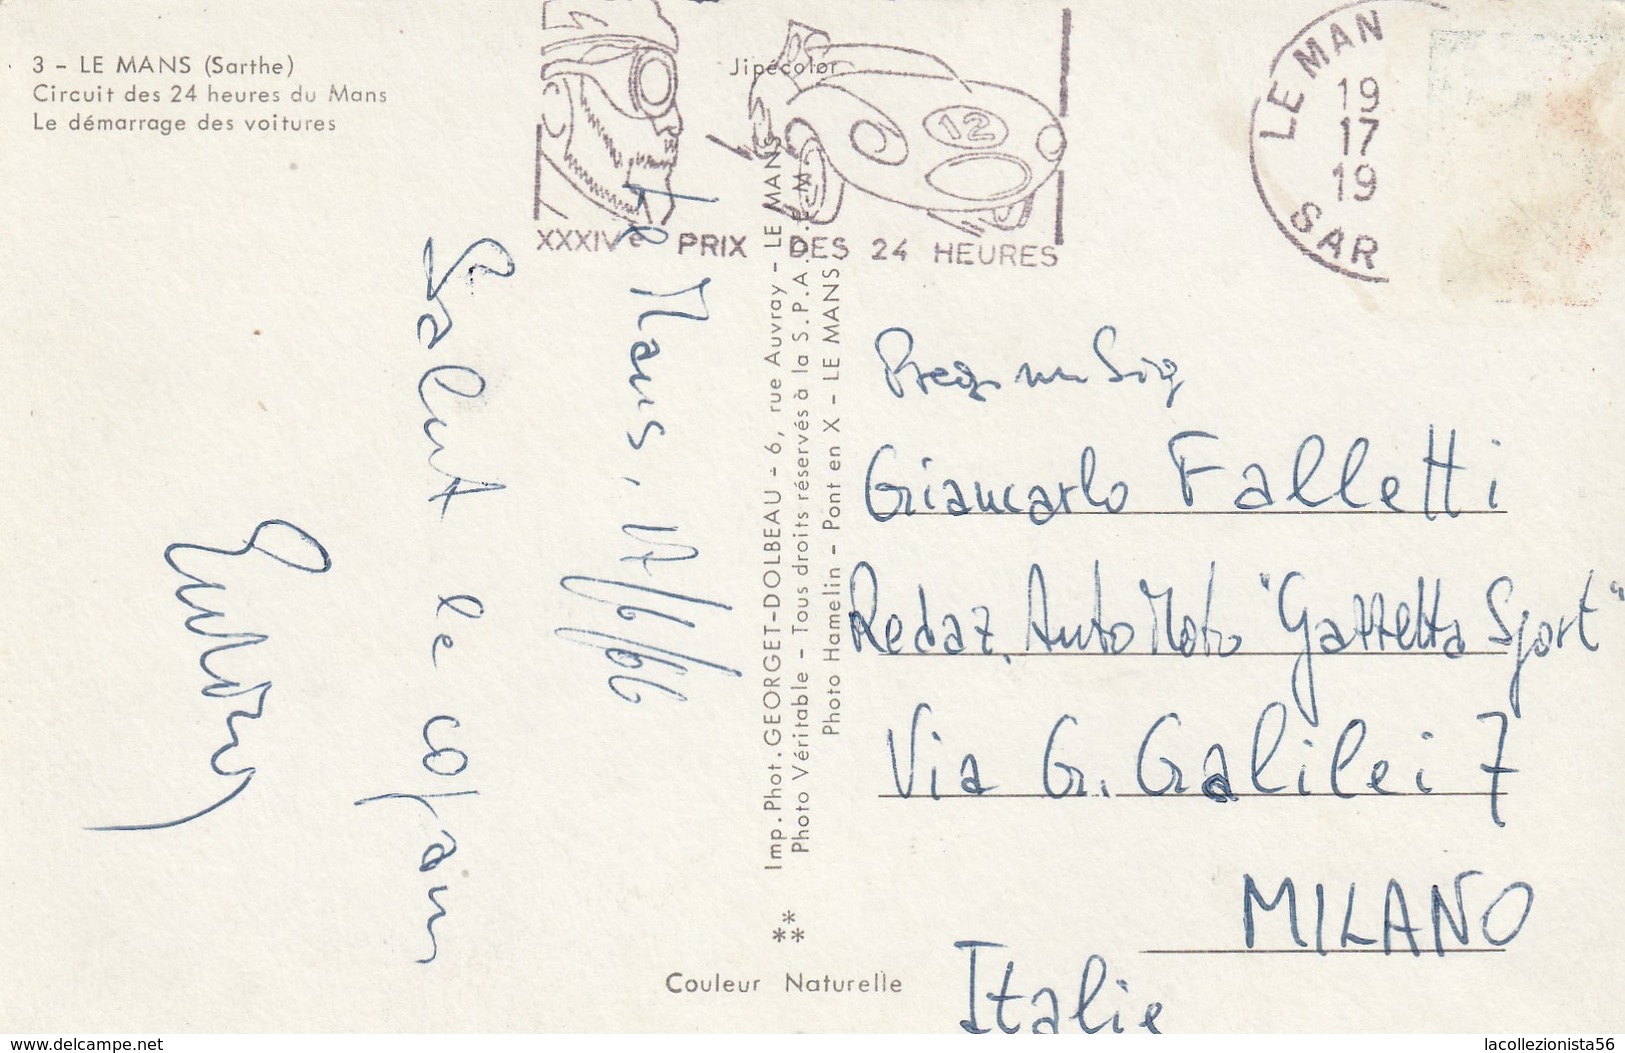 3 - LE MANS (Sarthe)
Circuit des 24 heures du Mans
Le démarrage des voitures
Jipécolor
12
XXXIVe PRIX DES 24 HEURES
LE MAN
19
17
19
SAR
Le Mans, 17/6/66
Salut le copain
Imp. Phot. GEORGET-DOLBEAU - 6, rue Auvray - LE MANS
Photo Véritable - Tous droits réservés à la S.P.A.D.E.M.
Photo Hamelin - Pont en X - LE MANS
Sig
Giancarlo Falletti
Redaz. Auto Moto "Gazzetta Sport"
Via G. Galilei 7
MILANO
Italie
Couleur Naturelle
www.delcampe.net
lacollezionista56